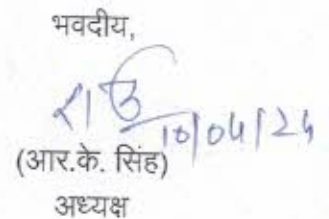 भवदीय,
10/04/24
(आर.के. सिंह)
अध्यक्ष